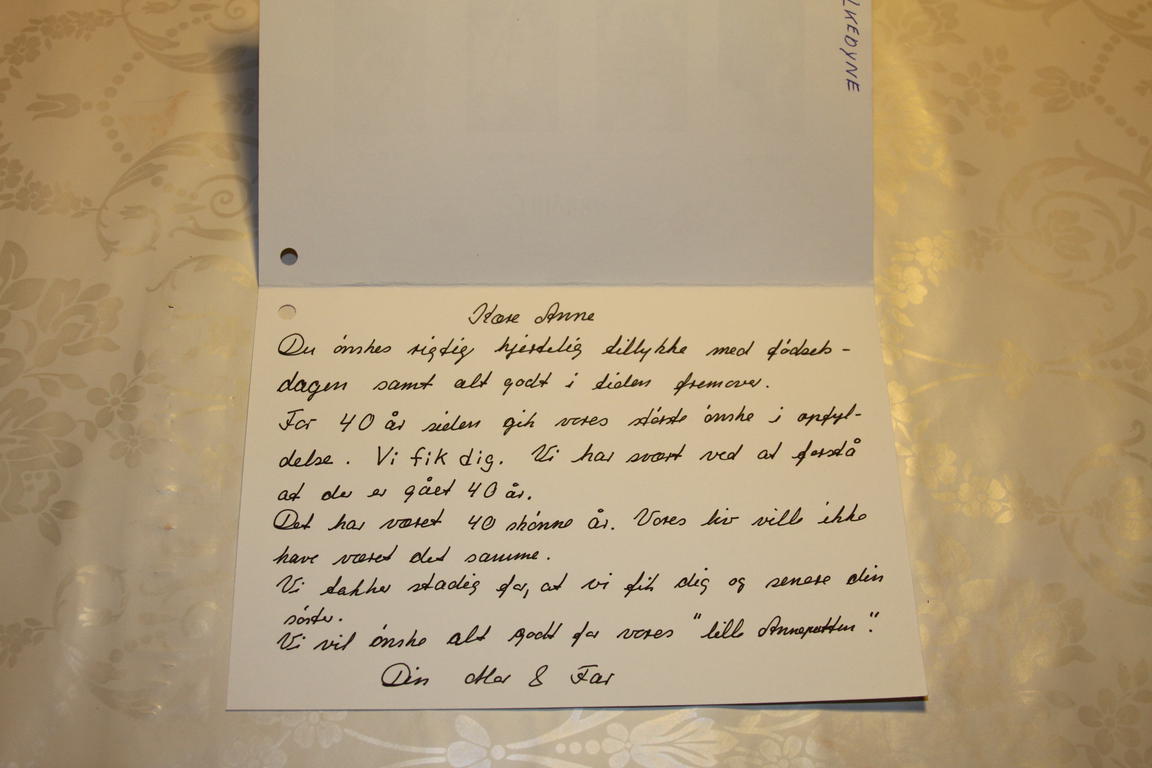 LKEDYNE
Kære Anne
Du ønskes rigtig hjertelig tillykke med fødsels-
dagen samt alt godt i tiden fremover.
For 40 år siden gik vores største ønske i opfyl-
delse. Vi fik dig. Vi har svært ved at forstå
at der er gået 40 år.
Det har været 40 skønne år. Vores liv ville ikke
have været det samme.
Vi takker stadig for, at vi fik dig og senere din
søster.
Vi vil ønske alt godt for vores "lille Anneputten".
Din Mor & Far